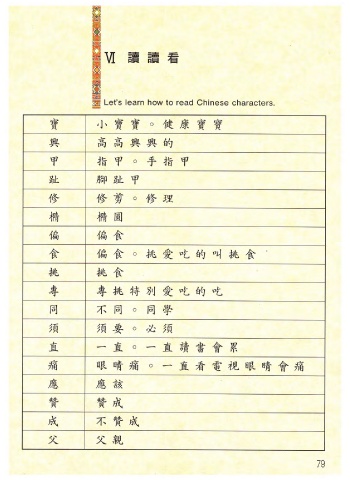 Ⅵ 讀讀看
Let's learn how to read Chinese characters.
寶 小寶寶。健康寶寶
興 高高興興的
甲 指甲。手指甲
趾 腳趾甲
修 修剪。修理
橢 橢圓
偏 偏食
食 偏食。挑愛吃的叫挑食
挑 挑食
專 專挑特別愛吃的吃
同 不同。同學
須 須要。必須
直 一直。一直讀書會累
痛 眼睛痛。一直看電視眼睛會痛
應 應該
贊 贊成
成 不贊成
父 父親
79